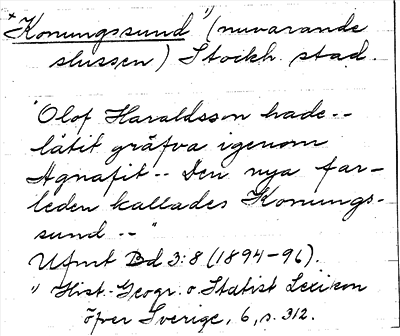 +Konungssund 1) (nuvarande
slussen) Stockh. stad.
"Olof Haraldsson hade --
låtit gräfva igenom
Agnafit -- Den nya far-
leden kallades Konungs-
sund -- "
Ufmt Bd 3:8 (1894-96).
1) Hist.-Geogr. o. Statist Lexikon
öfver Sverige, 6, s. 312.